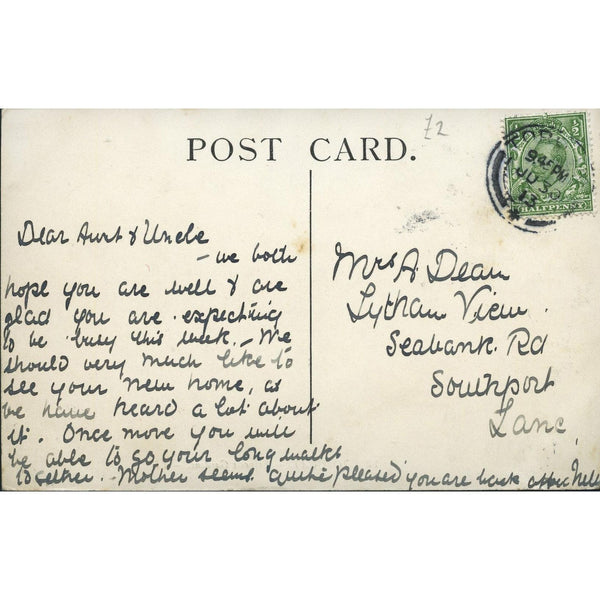 £2
POST CARD.
STOCKPORT
9 45 PM
JU 30
13
½
HALFPENNY
Dear Aunt & Uncle
– we both
hope you are well & are
glad you are expecting
to be busy this week. – We
should very much like to
see your new home, as
we have heard a lot about
it. Once more you will
be able to go your long walks
together. – Mother seems quite pleased you are back
Mrs A. Dean
Lytham View.
Seabank. Rd
Southport
Lanc.